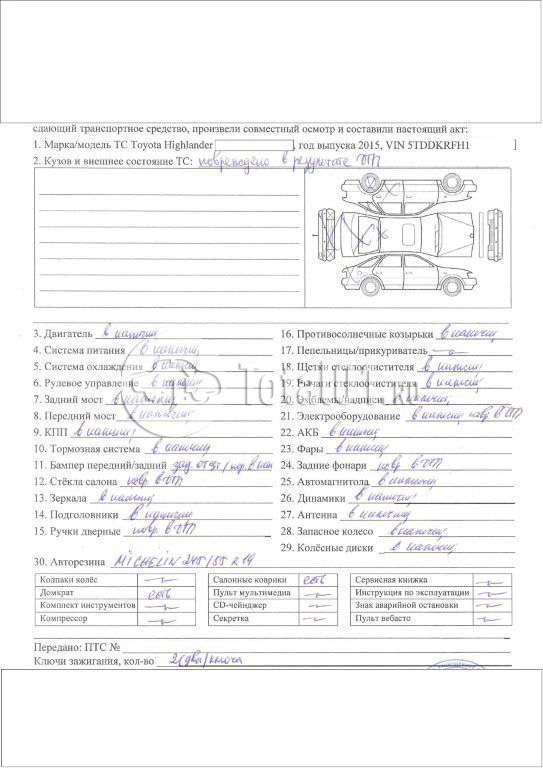 сдающий транспортное средство, произвели совместный осмотр и составили настоящий акт:
1. Марка/модель ТС Toyota Highlander , год выпуска 2015, VIN 5TDDKRFH1 ]
2. Кузов и внешнее состояние ТС: повреждено в результате ДТП
3. Двигатель в наличии
4. Система питания в наличии
5. Система охлаждения в наличии
6. Рулевое управление в наличии
7. Задний мост в наличии
8. Передний мост в наличии
9. КПП в наличии
10. Тормозная система в наличии
11. Бампер передний/задний зад. отсут / пер. в нал
12. Стёкла салона повр. в ДТП
13. Зеркала в наличии
14. Подголовники в наличии
15. Ручки дверные повр. в ДТП
16. Противосолнечные козырьки в наличии
17. Пепельницы/прикуриватель —
18. Щетки стеклоочистителя в наличии
19. Рычаги стеклоочистителя в наличии
20. Эмблемы/надписи в наличии
21. Электрооборудование в наличии повр. в ДТП
22. АКБ в наличии
23. Фары в наличии
24. Задние фонари повр. в ДТП
25. Автомагнитола в наличии
26. Динамики в наличии
27. Антенна в наличии
28. Запасное колесо в наличии
29. Колёсные диски в наличии
30. Авторезина MICHELIN 245/55 R19
Колпаки колёс — Салонные коврики есть Сервисная книжка —
Домкрат есть Пульт мультимедиа — Инструкция по эксплуатации —
Комплект инструментов — CD-чейнджер — Знак аварийной остановки —
Компрессор — Секретка — Пульт вебасто —
Передано: ПТС №
Ключи зажигания, кол-во 2(два) ключа